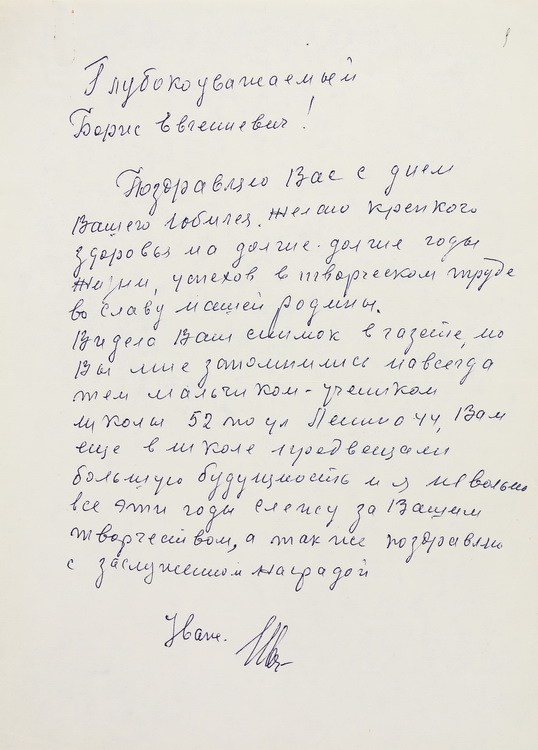 Глубокоуважаемый
Борис Евгениевич!
Поздравляю Вас с днем
Вашего юбилея. Желаю крепкого
здоровья на долгие-долгие годы
жизни, успехов в творческом труде
во славу нашей родины.
Видела Ваш снимок в газете, но
Вы мне запомнились навсегда
тем мальчиком-учеником
школы 52 по ул Ленина 44, Вам
еще в школе предвещали
большую будущность и я невольно
все эти годы слежу за Вашим
творчеством, а так же поздравляю
с заслуженной наградой
Уваж.